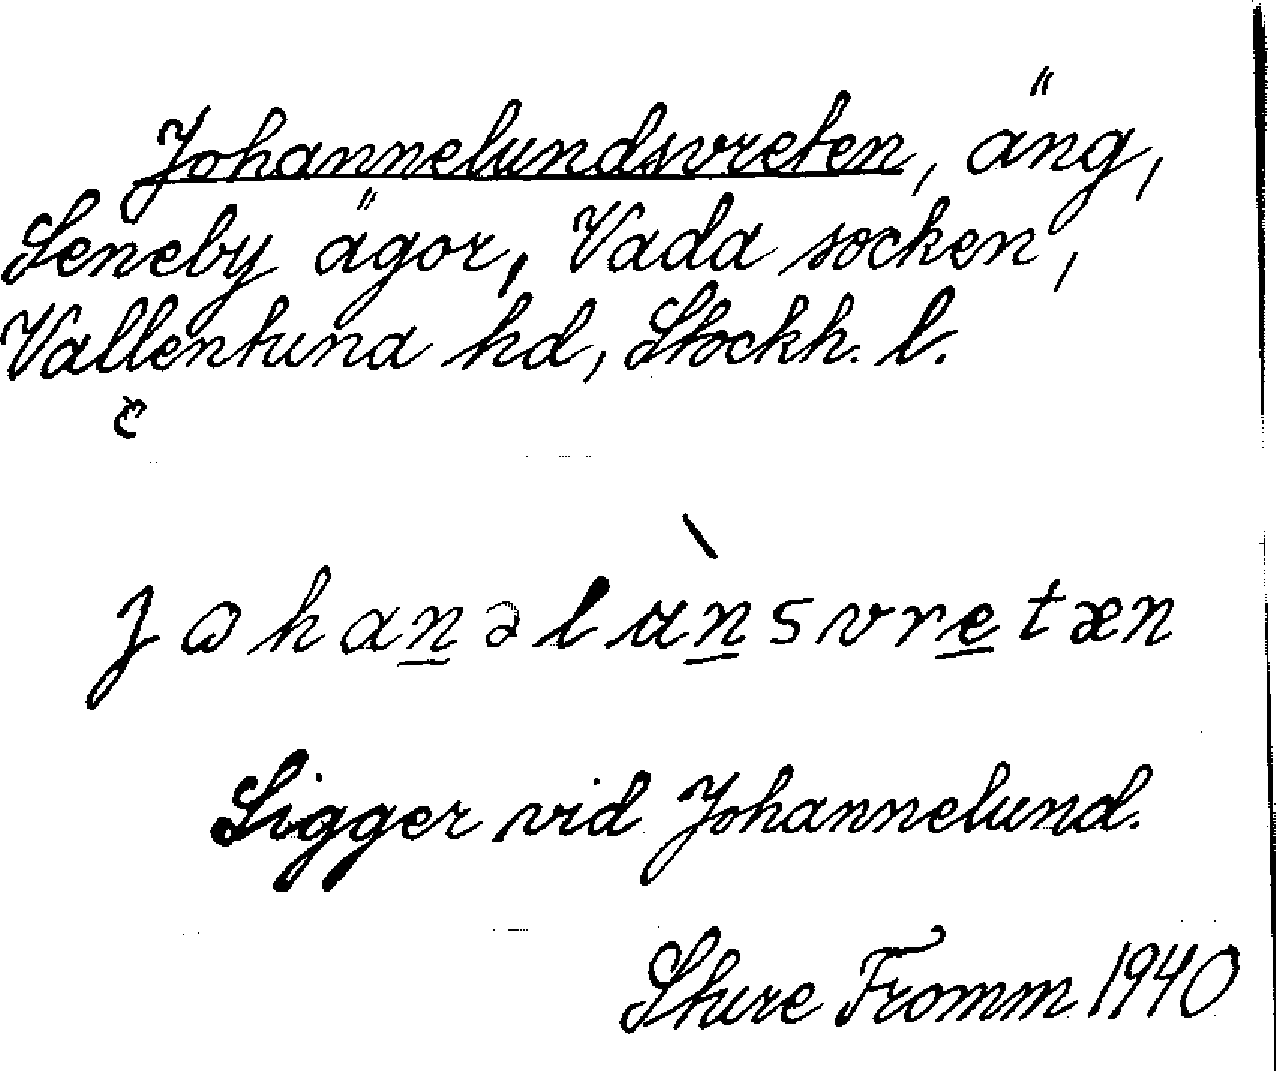 Johannelundsvreten, äng,
Seneby ägor, Vada socken,
Vallentuna hd, Stockh. l.
johan̲əluǹ̲svre̲tæn
Ligger vid Johannelund.
Sture Fromm 1940